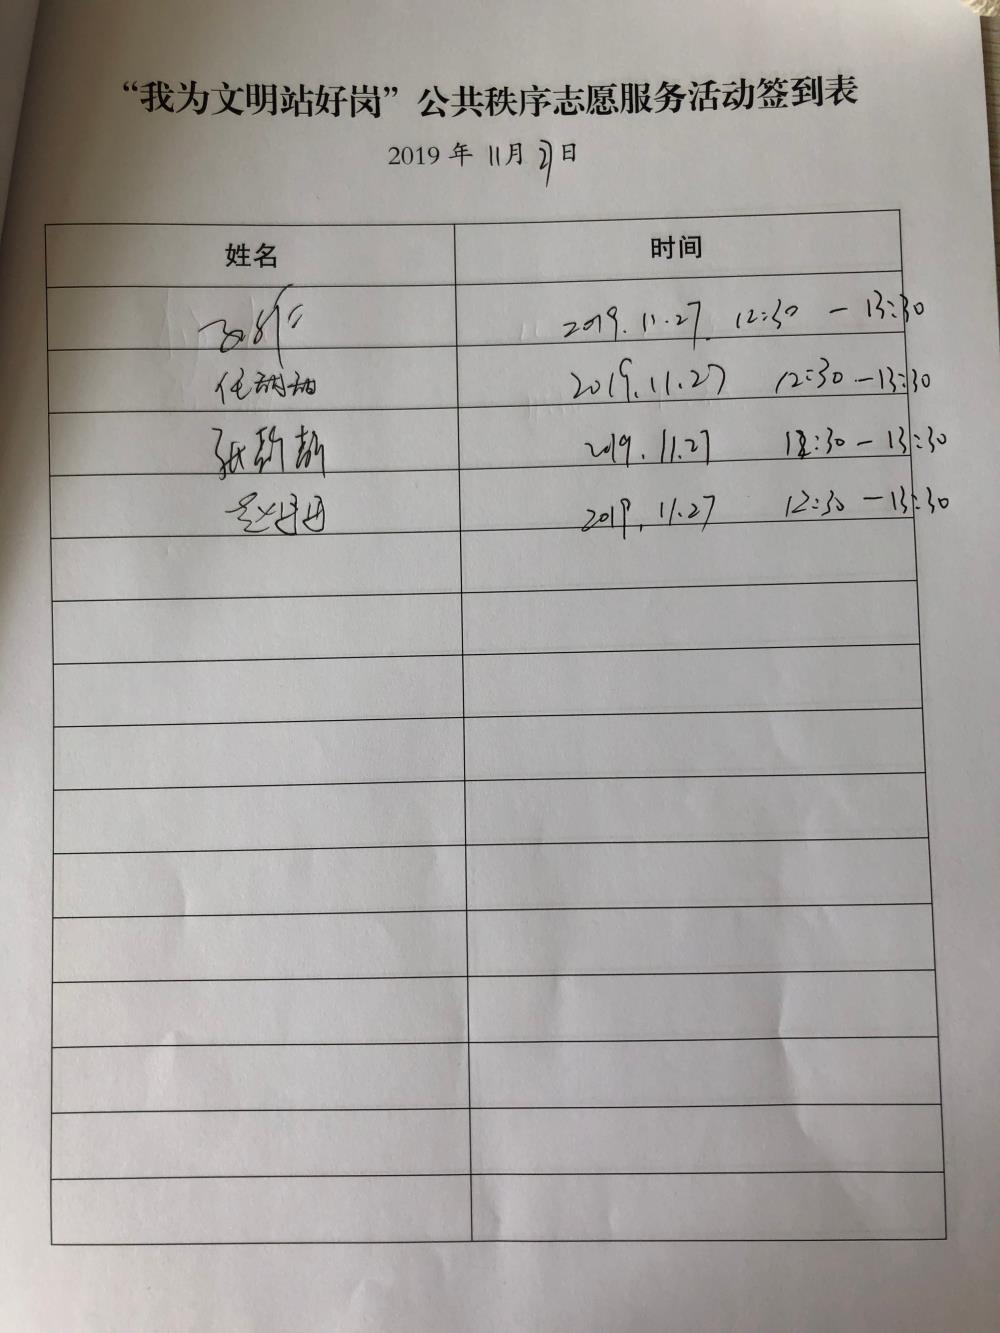 “我为文明站好岗”公共秩序志愿服务活动签到表
2019 年 11月 27日
姓名 时间
2019.11.27 12:30 — 13:30
任甜甜 2019.11.27 12:30 — 13:30
张新新 2019.11.27 12:30 — 13:30
赵丹丹 2019.11.27 12:30 — 13:30